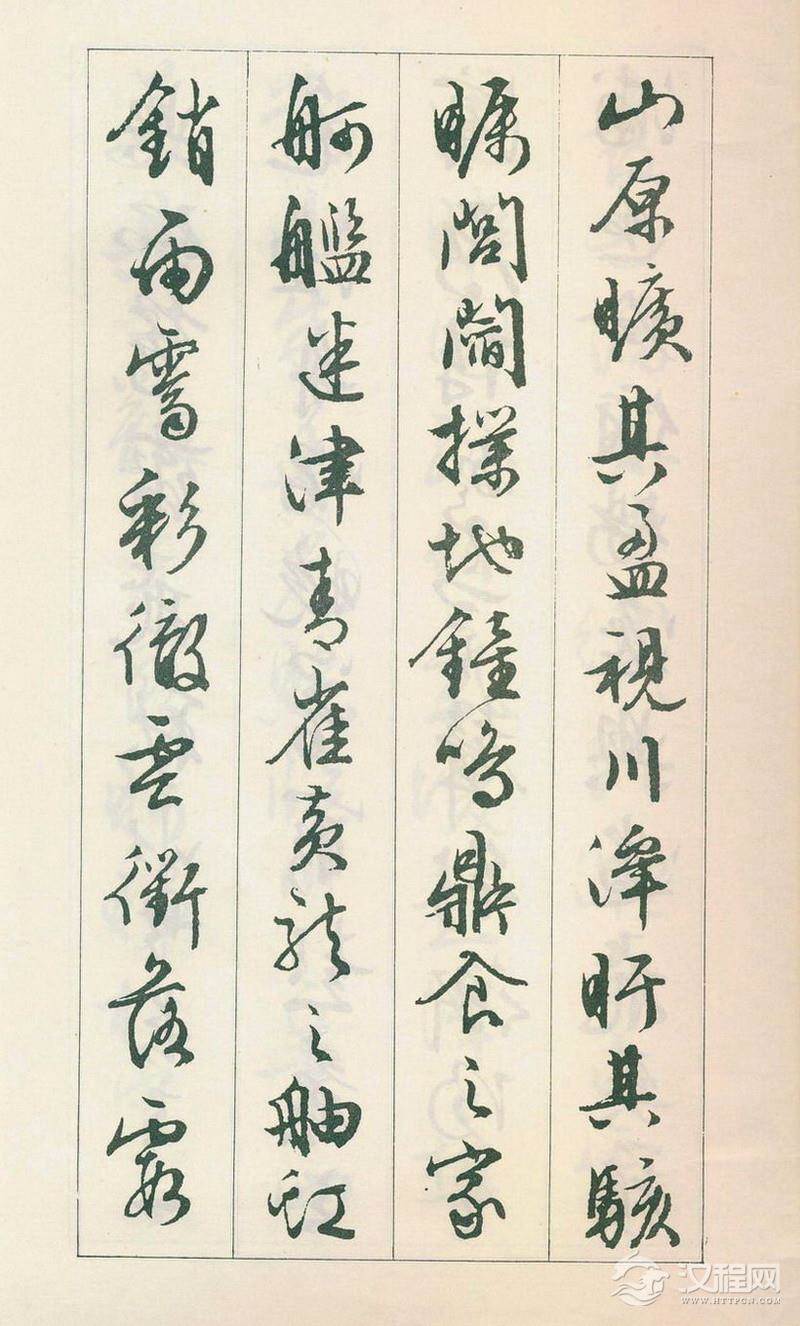 山原曠其盈視川澤盱其駭
矚閭閻撲地鐘鳴鼎食之家
舸艦迷津青雀黃龍之舳虹
銷雨霽彩徹雲衢落霞
汉程网
WWW.HTTPCN.COM